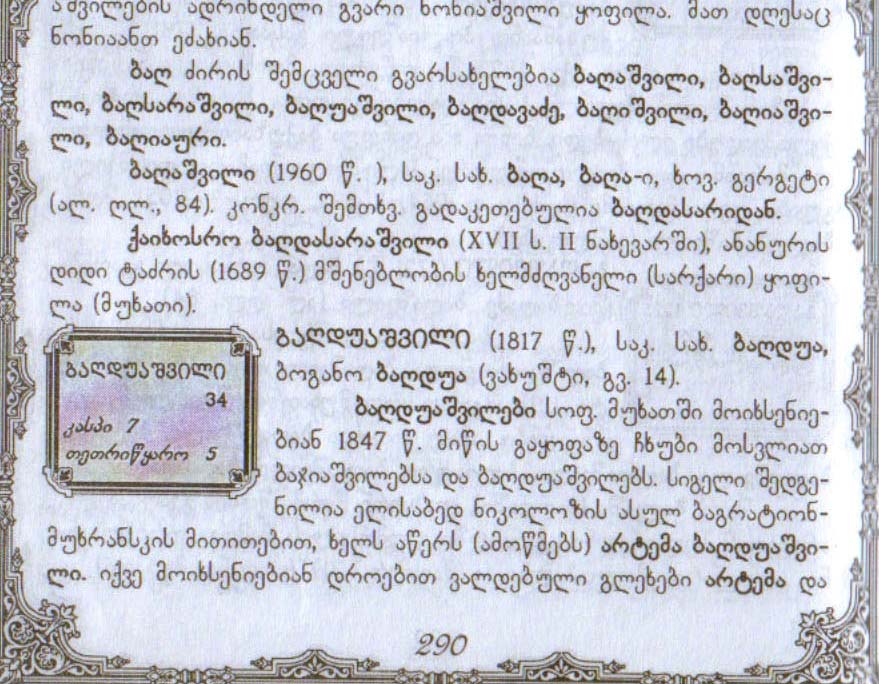 აშვილების ადრინდელი გვარი ხოხიაშვილი ყოფილა. მათ დღესაც
ნონიაანთ ეძახიან.
ბაღ ძირის შემცველი გვარსახელებია ბაღაშვილი, ბაღსაშვი-
ლი, ბაღსარაშვილი, ბაღუაშვილი, ბაღდავაძე, ბაღიშვილი, ბაღიაშვი-
ლი, ბაღიაური.
ბაღაშვილი (1960 წ. ), საკ. სახ. ბაღა, ბაღა-ი, ხოვ. გერგეტი
(ალ. ღლ., 84). კონკრ. შემთხვ. გადაკეთებულია ბაღდასარიდან.
ქაიხოსრო ბაღდასარაშვილი (XVII ს. II ნახევარში), ანანურის
დიდი ტაძრის (1689 წ.) მშენებლობის ხელმძღვანელი (სარქარი) ყოფი-
ლა (მუხათი).
ბაღდუაშვილი (1817 წ.), საკ. სახ. ბაღდუა,
ბოგანო ბაღდუა (ვახუშტი, გვ. 14).
ბაღდუაშვილი
34
კასპი 7
თეთრიწყარო 5
ბაღდუაშვილები სოფ. მუხათში მოიხსენიე-
ბიან 1847 წ. მიწის გაყოფაზე ჩხუბი მოსვლიათ
ბაჯიაშვილებსა და ბაღდუაშვილებს. სიგელი შედგე-
ნილია ელისაბედ ნიკოლოზის ასულ ბაგრატიონ-
მუხრანსკის მითითებით, ხელს აწერს (ამოწმებს) არტემა ბაღდუაშვი-
ლი. იქვე მოიხსენიებიან დროებით ვალდებული გლეხები არტემა და
290